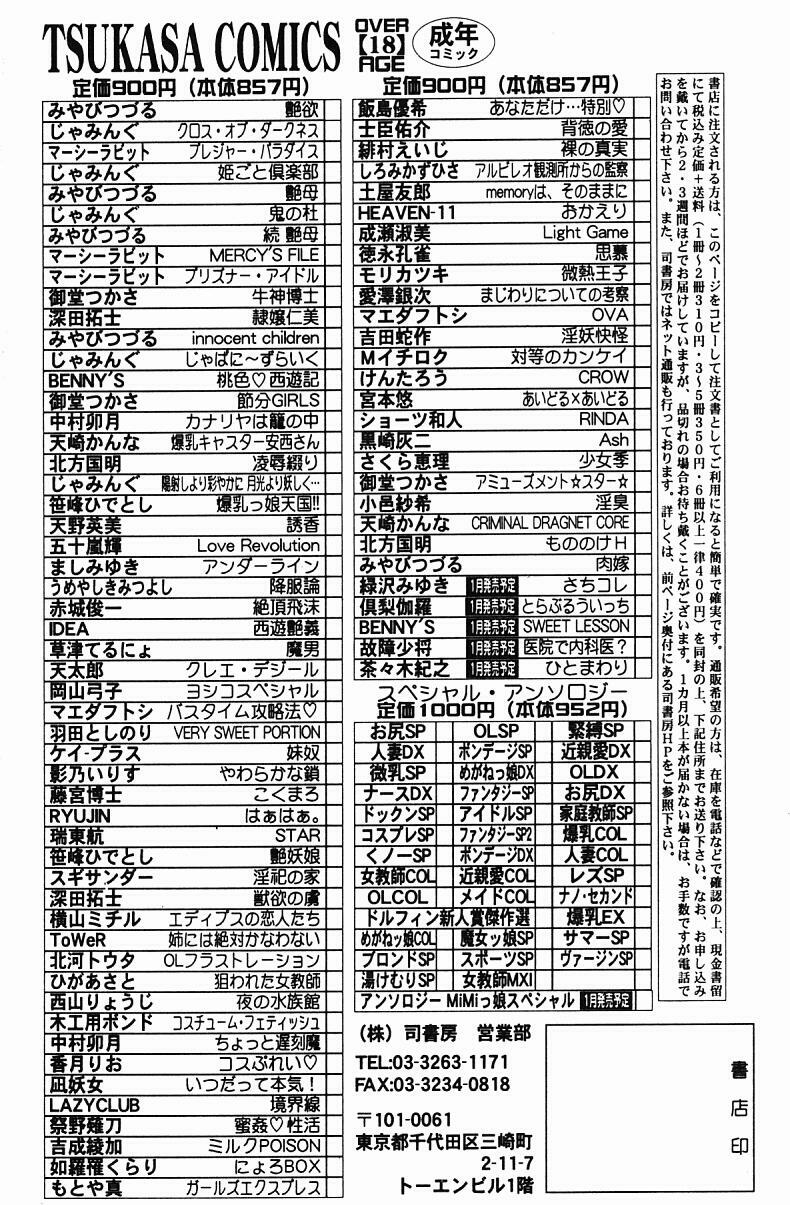 TSUKASA COMICS
OVER
【18】
AGE
成年
コミック
定価900円(本体857円)
みやびつづる 艶欲
じゃみんぐ クロス・オブ・ダークネス
マーシーラビット プレジャー・パラダイス
じゃみんぐ 姫ごと倶楽部
みやびつづる 艶母
じゃみんぐ 鬼の杜
みやびつづる 続 艶母
マーシーラビット MERCY'S FILE
マーシーラビット プリズナー・アイドル
御堂つかさ 牛神博士
深田拓士 隷嬢仁美
みやびつづる innocent children
じゃみんぐ じゃぱに〜ずらいく
BENNY'S 桃色♡西遊記
御堂つかさ 節分GIRLS
中村卯月 カナリヤは籠の中
天崎かんな 爆乳キャスター安西さん
北方国明 凌辱綴り
じゃみんぐ 陽射しより彩やかに 月光より妖しく…
笹峰ひでとし 爆乳っ娘天国!!
天野英美 誘香
五十嵐輝 Love Revolution
ましみゆき アンダーライン
うめやしきみつよし 降服論
赤城俊一 絶頂飛沫
IDEA 西遊艶義
草津てるにょ 魔男
天太郎 クレエ・デジール
岡山弓子 ヨシコスペシャル
マエダフトシ バスタイム攻略法♡
羽田としのり VERY SWEET PORTION
ケイ-プラス 妹奴
影乃いりす やわらかな鎖
藤宮博士 こくまろ
RYUJIN はぁはぁ。
瑞東航 STAR
笹峰ひでとし 艶妖娘
スギサンダー 淫祀の家
深田拓士 獣欲の虜
横山ミチル エディプスの恋人たち
ToWeR 姉には絶対かなわない
北河トウタ OLフラストレーション
ひがあさと 狙われた女教師
西山りょうじ 夜の水族館
木工用ボンド コスチューム・フェティッシュ
中村卯月 ちょっと遅刻魔
香月りお コスぷれい♡
凪妖女 いつだって本気!
LAZYCLUB 境界線
祭野薙刀 蜜姦♡性活
吉成綾加 ミルクPOISON
如羅罹くらり にょろBOX
もとや真 ガールズエクスプレス
定価900円(本体857円)
飯島優希 あなただけ…特別♡
士臣佑介 背徳の愛
緋村えいじ 裸の真実
しろみかずひさ アルビレオ観測所からの監察
土屋友郎 memoryは、そのままに
HEAVEN-11 おかえり
成瀬淑美 Light Game
徳永孔雀 思慕
モリカツキ 微熱王子
愛澤銀次 まじわりについての考察
マエダフトシ OVA
吉田蛇作 淫妖快怪
Mイチロク 対等のカンケイ
けんたろう CROW
宮本悠 あいどる×あいどる
ショーツ和人 RINDA
黒崎灰二 Ash
さくら恵理 少女季
御堂つかさ アミューズメント☆スター☆
小邑紗希 淫臭
天崎かんな CRIMINAL DRAGNET CORE
北方国明 もののけH
みやびつづる 肉嫁
緑沢みゆき 1月発売予定 さちコレ
倶梨伽羅 1月発売予定 とらぶるういっち
BENNY'S 1月発売予定 SWEET LESSON
故障少将 1月発売予定 医院で内科医?
茶々木紀之 1月発売予定 ひとまわり
スペシャル・アンソロジー
定価1000円(本体952円)
お尻SP OLSP 緊縛SP
人妻DX ボンデージSP 近親愛DX
微乳SP めがねっ娘DX OLDX
ナースDX ファンタジーSP お尻DX
ドックンSP アイドルSP 家庭教師SP
コスプレSP ファンタジーSP2 爆乳COL
くノーSP ボンデージDX 人妻COL
女教師COL 近親愛COL レズSP
OLCOL メイドCOL ナノ・セカンド
ドルフィン新人賞傑作選 爆乳EX
めがねッ娘COL 魔女ッ娘SP サマーSP
ブロンドSP スポーツSP ヴァージンSP
湯けむりSP 女教師MXI
アンソロジー MiMiっ娘スペシャル 1月発売予定
(株) 司書房 営業部
TEL:03-3263-1171
FAX:03-3234-0818
〒101-0061
東京都千代田区三崎町
2-11-7
トーエンビル1階
書店に注文される方は、このページをコピーして注文書としてご利用になると簡単で確実です。通販希望の方は、在庫を電話などで確認の上、現金書留
にて税込み定価+送料(1冊〜2冊310円・3〜5冊350円・6冊以上一律400円)を同封の上、下記住所までお送り下さい。なお、お申し込み
を戴いてから2・3週間ほどでお届けしていますが、品切れの場合お待ち戴くことがございます。1カ月以上本が届かない場合は、お手数ですが電話で
お問い合わせ下さい。また、司書房ではネット通販も行っております。詳しくは、前ページ奥付にある司書房HPをご参照下さい。
書店印